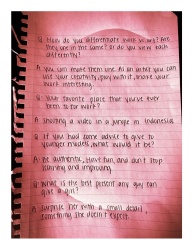 Q: How do you differentiate with so many? Are
they are in the same? Or do you work each
differently?
A: You can make them use it in what you can
use your creativity, play with it, make your
work interesting.
Q: Your favorite place that you've ever
been to for work?
A: Shooting a video in a jungle in Indonesia.
Q: If you had some advice to give to
younger models, what would it be?
A: Be authentic, have fun, and don't stop
learning and improving.
Q: What is the best present any guy can
give a girl?
A: Surprise her with a small detail,
something she doesn't expect.